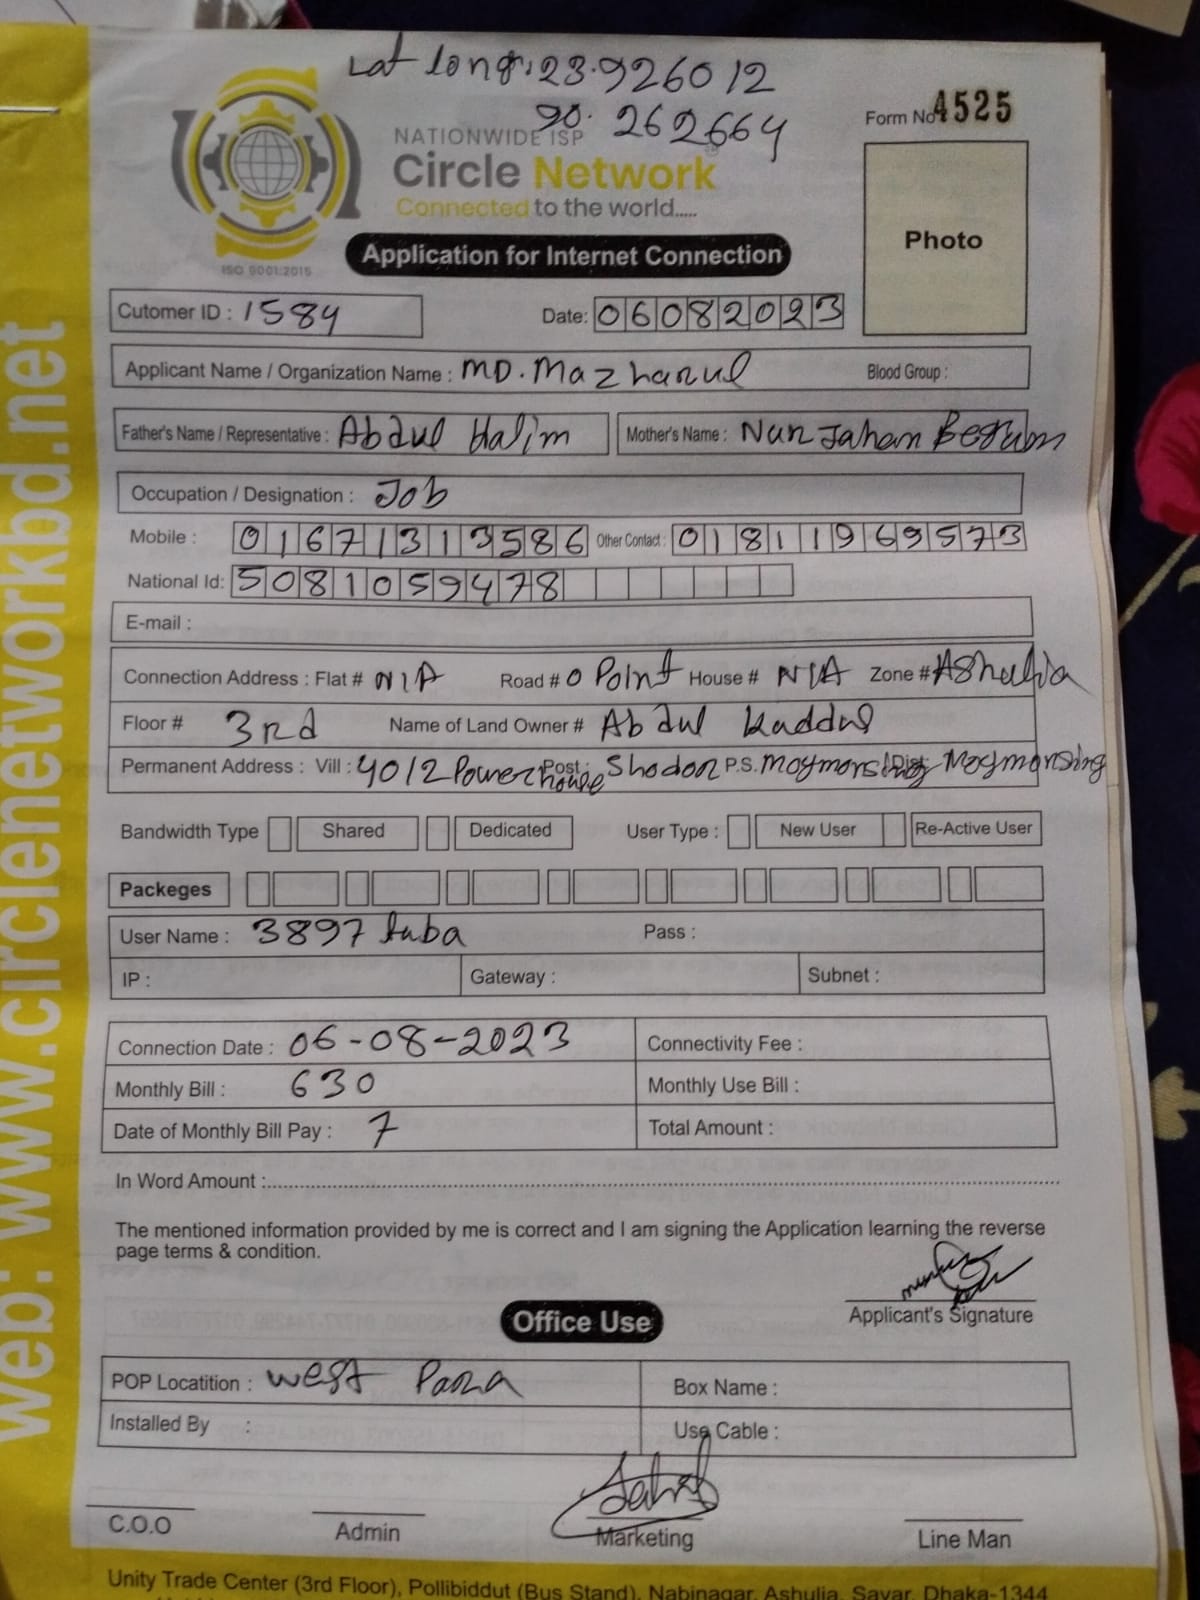 Lat long: 23.926012
90.262664
Form No 4525
NATIONWIDE ISP
Circle Network
Connected to the world.....
ISO 9001:2015
Photo
Application for Internet Connection
Cutomer ID : 1584 Date: 06082023
Applicant Name / Organization Name : MD. Mazharul Blood Group :
Father's Name / Representative : Abdul Halim Mother's Name : Nur Jahan Begum
Occupation / Designation : Job
Mobile : 01671313586 Other Contact : 01811969573
National Id: 5081059478
E-mail :
Connection Address : Flat # N/A Road # 0 Point House # N/A Zone # Ashulia
Floor # 3rd Name of Land Owner # Abdul Kaddus
Permanent Address : Vill : 40/2 Power house Post : Shodor P.S. Moymonsing Dist: Moymonsing
Bandwidth Type Shared Dedicated User Type : New User Re-Active User
Packeges
User Name : 3897 tuba Pass :
IP : Gateway : Subnet :
Connection Date : 06-08-2023 Connectivity Fee :
Monthly Bill : 630 Monthly Use Bill :
Date of Monthly Bill Pay : 7 Total Amount :
In Word Amount :
The mentioned information provided by me is correct and I am signing the Application learning the reverse
page terms & condition.
Applicant's Signature
Office Use
POP Locatition : west Para Box Name :
Installed By : Use Cable :
C.O.O Admin Marketing Line Man
Unity Trade Center (3rd Floor), Pollibiddut (Bus Stand), Nabinagar, Ashulia, Savar, Dhaka-1344
web: www.circlenetworkbd.net